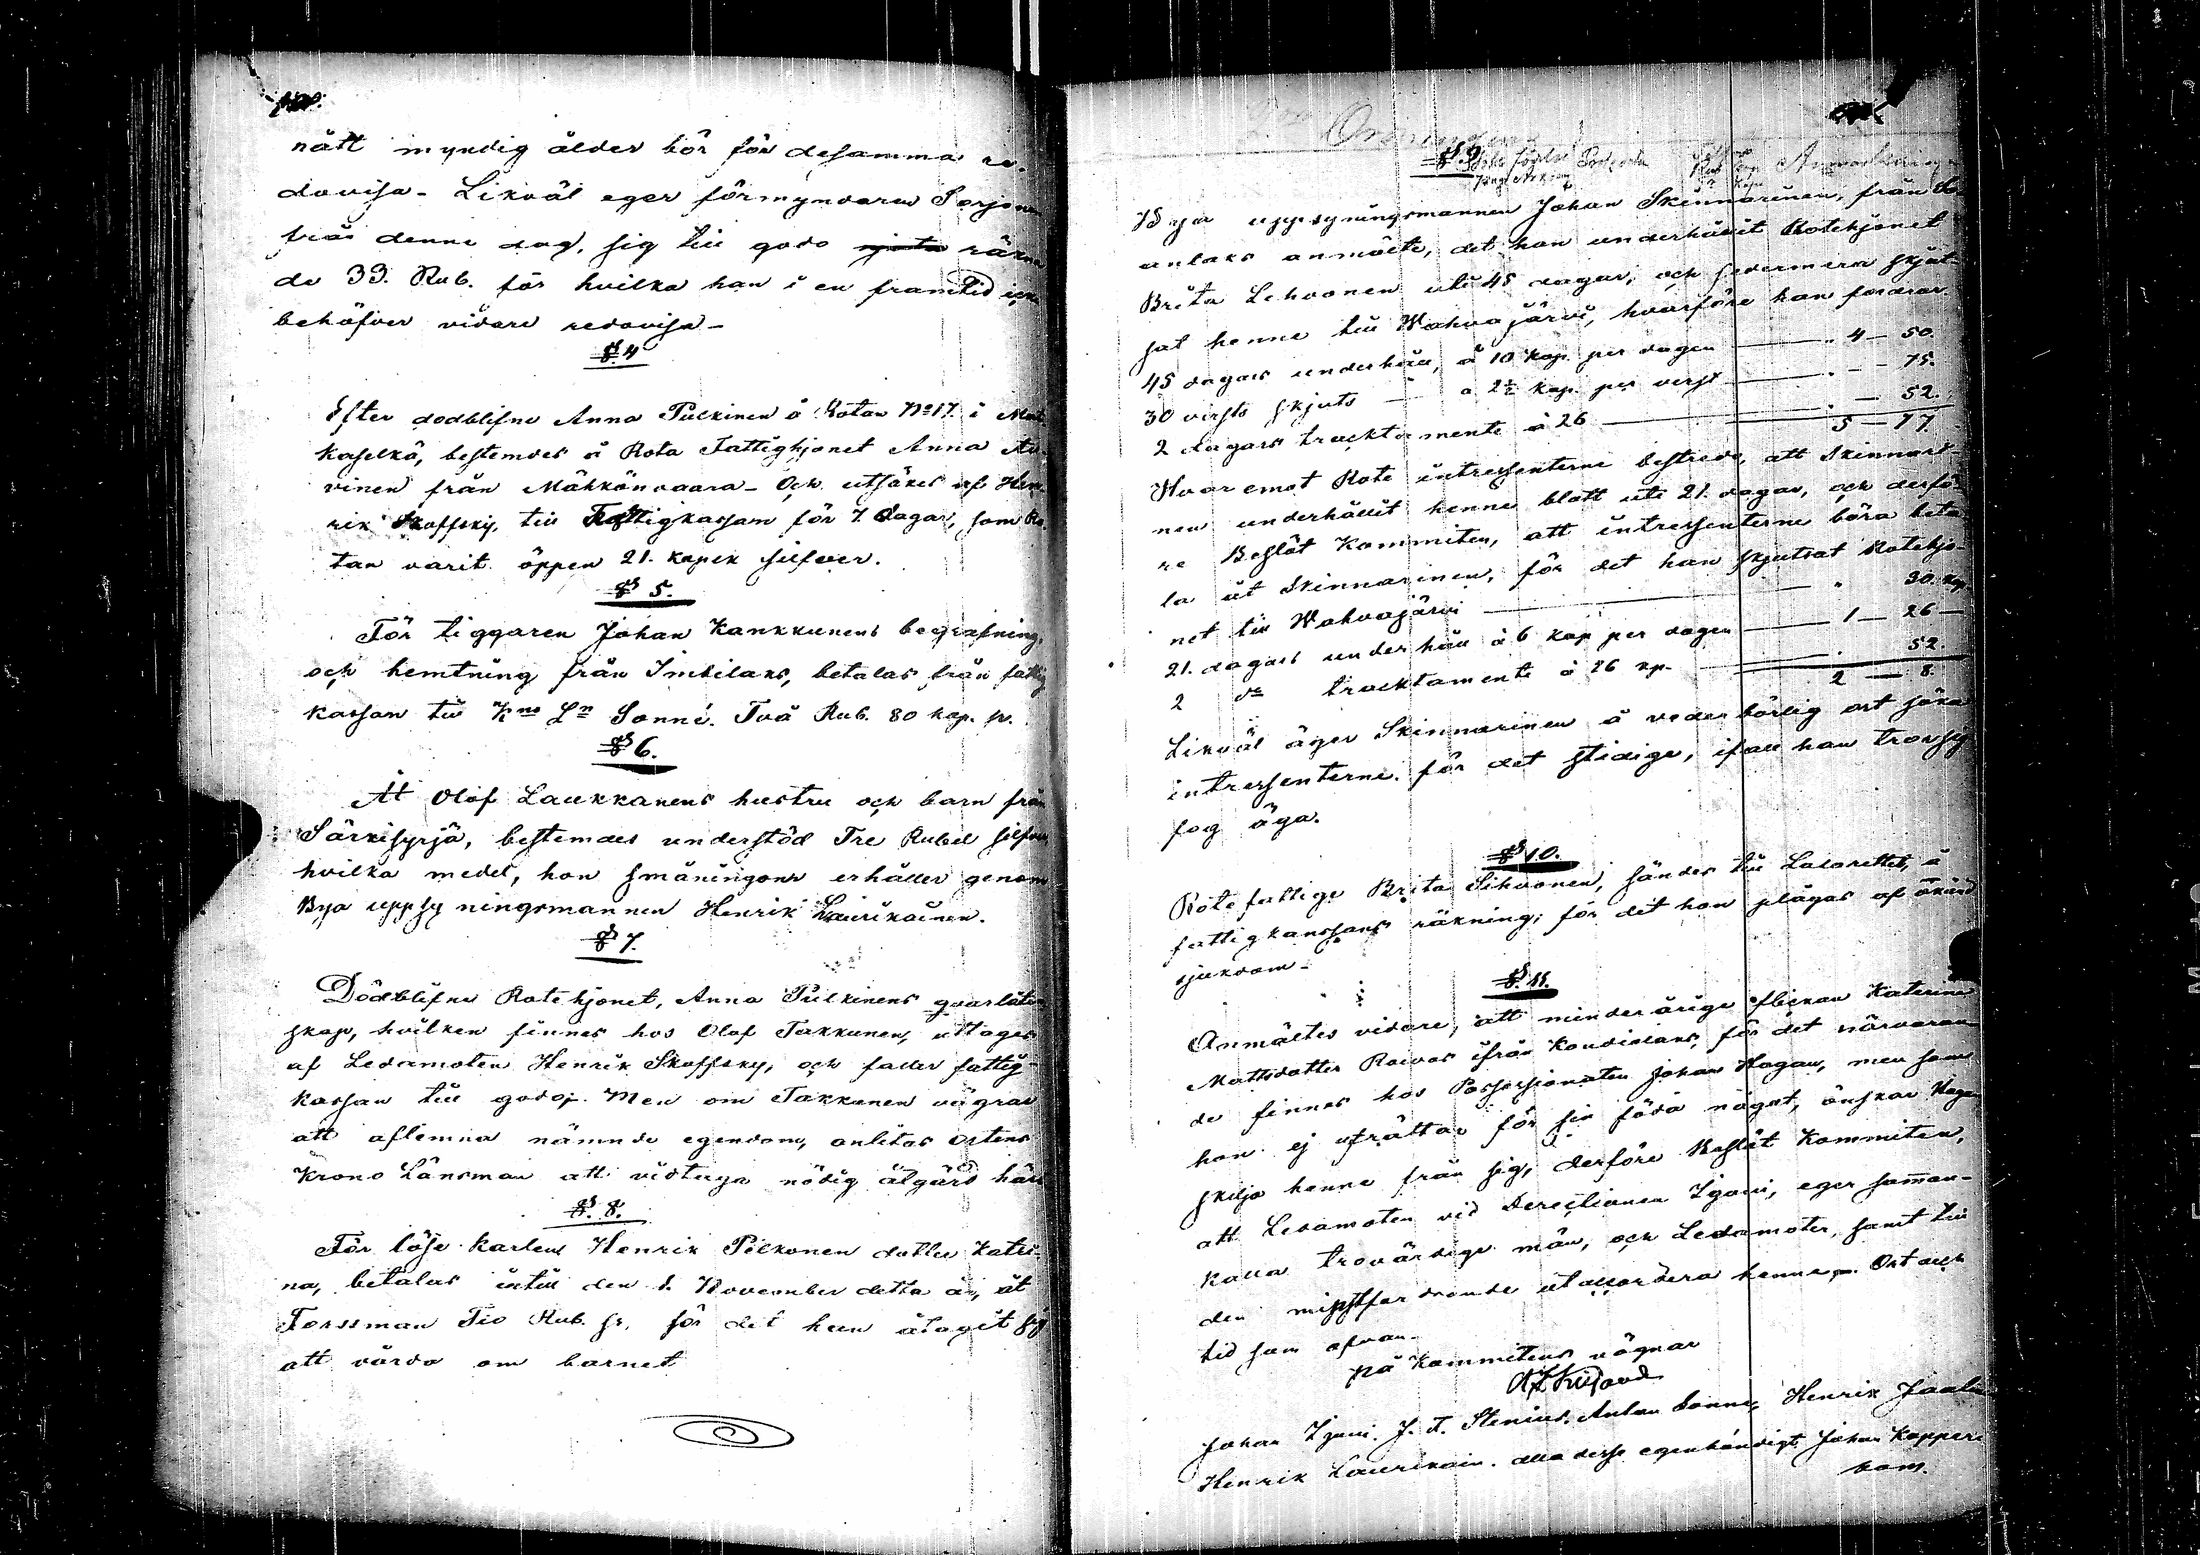 nått myndig ålder bör för desamma re-
dovisa - Likväl eger förmyndaren Sorjonen
från denne dag, sig till godo räkna
de 33. Rub. för hvilka han i en framtid icke
behöfver vidare redovisa -
§. 4
Efter dödblifne Anna Pulkinen å Rotan No 17. i Mat
kaselkä, bestemdes å Rota Fattighjonet Anna
vinen från Mäkkönvaara - Och utsökes af Hen-
rik Skoffsky, till Fattigkassan för 7. dagar, som Ro-
tan varit öppen 21. kopek silfver.
§ 5.
För tiggaren Johan Kankkunens begrafning,
och hemtning från Imbilaks, betalas från fattig
kassan till Kno Ln Sonné. Två Rub. 80 kop. sr.
§ 6.
At Olof Laukkanens hustru och barn från
Särkisyrjä, bestemdes understöd Tre Rubel silfver
hvilka medel, hon småningom erhåller genom
Bya uppsyningsmannen Henrik Laurikainen.
§ 7.
Dödblifne Rotehjonet, Anna Pulkinens qvarlåten
skap, hvilken finnes hos Olof Takkunen, uttages
af Ledamoten Henrik Skoffsky, och faller fattig-
kassan till godo. Men om Takkunen vägrar
att aflemna nämnde egendom, anlitas ortens
Krono Länsman att vidtaga nödig åtgärd häri
§. 8.
För löse karlens Henrik Pelkonen dotter Katri-
na, betalas intill den 1. November detta år, åt
Forssman Tio Rub. sr. för det han åtagit sig
att vårda om barnet
§. 9.
Bya uppsyningsmannen Johan Skinnarinen, från
anlaks anmälte, det han underhållit Rotehjonet
Brita Lehvonen uti 45 dagar, och sedermera skjut-
sat henne till Wahvajärvi, hvarföre han fordrar
45 dagars underhåll, à 10 kop. per dagen 4 - 50.
30 versts skjuts - à 2½ kop. per verst - 75.
2 dagars tracktamente à 26 - 52.
5 - 77
Hvaremot Rote intressenterne bestrede, att Skinnari-
nen underhållit henne blott uti 21. dagar, och derfö-
re Beslöt Kommiten, att intressenterne böra beta
la åt Skinnarinen, för det han skjutsat Rotehjo-
net till Wahvajärvi 30. kop
21. dagars underhåll à 6 kop per dagen 1 - 26 -
2 do tracktamente à 26 kp. 52.
2 - 8.
Likväl äger Skinnarinen å vederbörlig ort söka
intressenterne för det stridige, ifall han tror sig
fog äga.
§ 10.
Rotefattige Brita Sihvonen, sändes till Lasarettet, å
fattigkassans räkning, för det hon plågas af
sjukdom -
§. 11.
Anmältes vidare, att minderårige flickan Katerina
Mattsdotter Raivas ifrån Kondislaks, för det närvaran-
de finnes hos Possessionaten Johan Hagan, men som
hon ej uträttar för sin föda något, önskar Hagan
skilja henne från sig, derföre Beslöt Kommiten,
att Ledamoten vid Derectionen Zgoni, eger samman-
kalla trovärdige män, och Ledamoter, samt till
den minstfordrande utackordera henne. Ort och
tid som ofvan.
På Kommitens vägnar
Johan Zgoni. J. F. Stenius. Anton Sonne, Henrik
Henrik Laurikain. alla desse egenhändigt Johan Kapperi
bom.